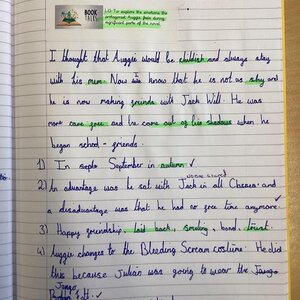 BOOK TALES
L.O: To explore the emotions the protagonist, Auggie, feels during significant parts of the novel
I thought that Auggie would be childish and always stay
with his mum. Now we know that he is not as shy and
he is now making friends with Jack Will. He was
more care free and he came out of his shadows when he
began school - friends.
1) In septe September in autumn
2) An advantage was he sat with Jack in all Classes and
a disadvantage was that he had no free time anymore
3) Happy friendship, laid back, smiling, bond,
4) Auggie changes to the Bleeding Scream costume. He did
this because Julian was going to wear the Jango